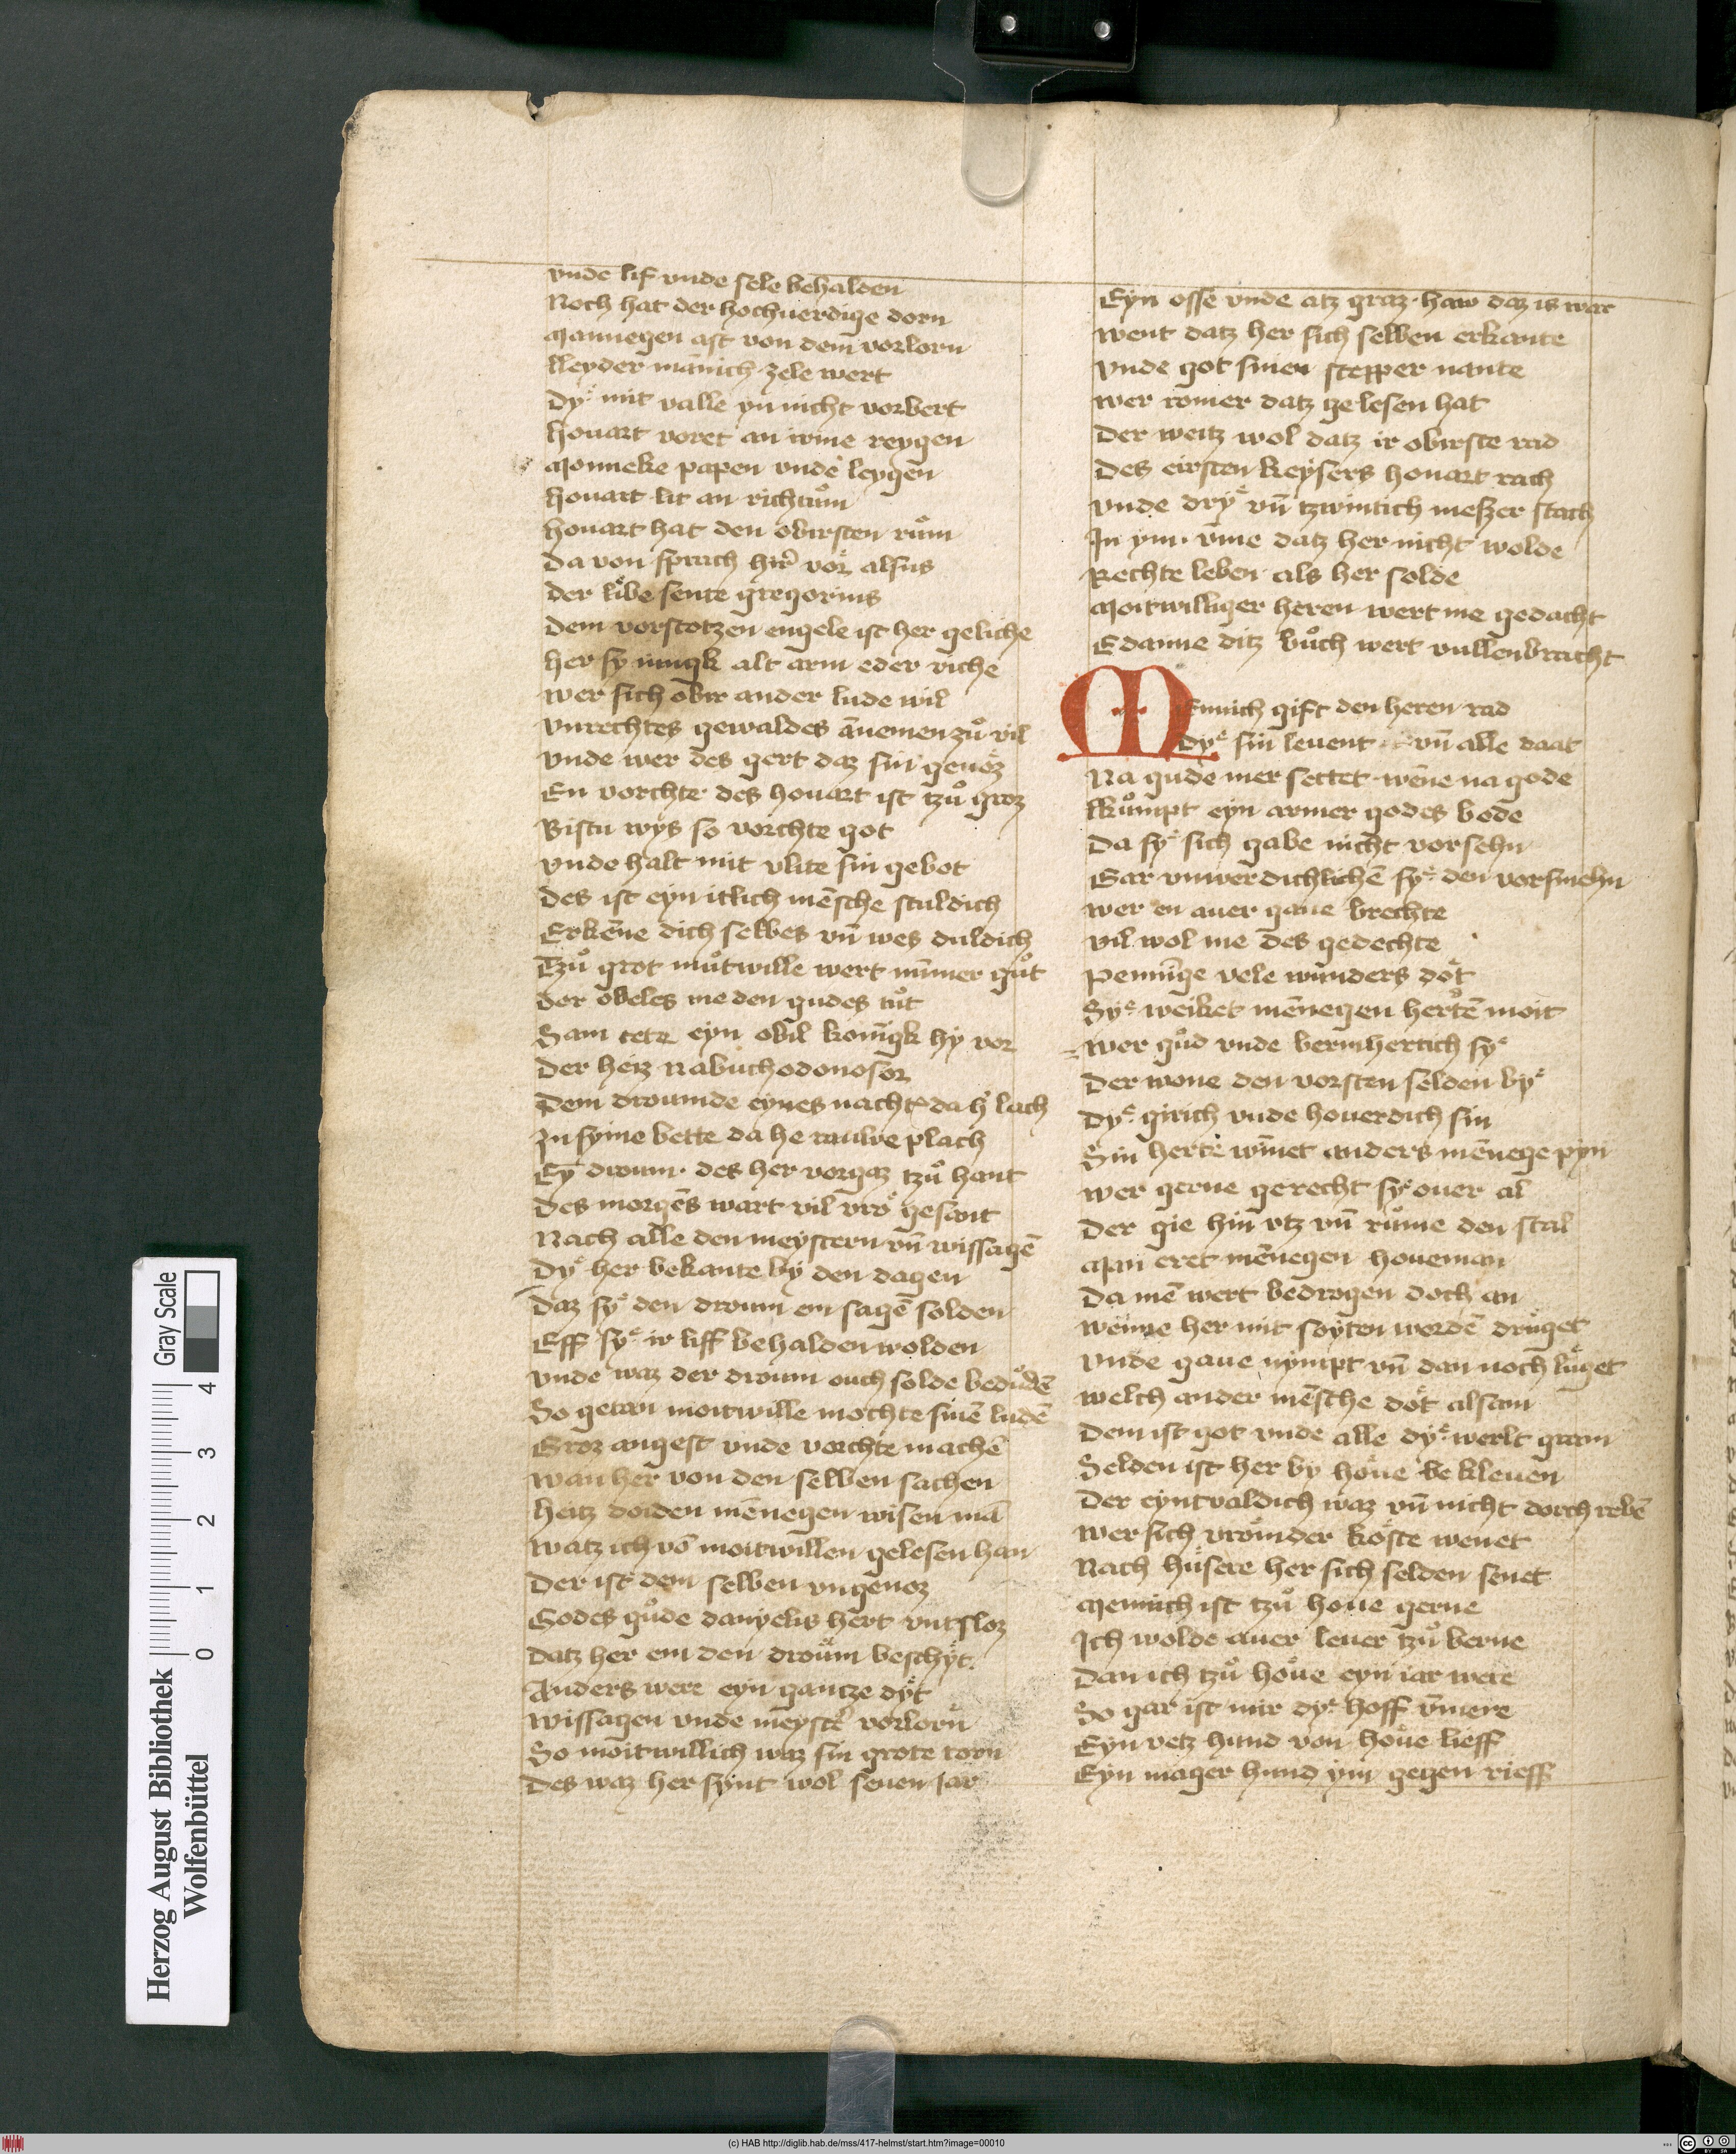 vnde lif vnde sele behalden
Noch hat der hochuerdige dorn
Mannegen ast von dem vorlorn
lleyder mānich zele wert
Dyͤ mit valle yn nicht vorbert
Houart voret an irme reygen
Monneke papen vnde leygen
Houart lit an richtuͦm
Houart hat den obirsten ruͦm
Da von sprach hir vor alsus
der libe sente gregorius
Dem vorstotzen engele ist her geliche
Her sy iungk alt arm eder riche
Wer sich obir ander lude wil
Vnrechtes gewaldes ānemen zuͦ vil
Vnde wer des gert daz sin genoz
En vorchte des houart ist tzuͦ groz
Bistu wys so vorchte got
Vnde halt mit vlite sin gebot
Des ist eyn itlich mēsche sculdich
Erkēne dich selbes vn̄ wes duldich
Tzuͦ grot muͦtwille wert nūmer guͦt
der obeles me den gudes tuͦt
Sam tete eyn obil konīgk hy vor
Der heiz Nabuchodonosor
Dem droumde eynes nachtes da h' lach
In syme bette da he rauwe plach
Ey droum des her vorgaz tzuͦ hant
Des morgēs wart vil vro gesant
Nach alle den meystern vn̄ wissagē
Dyͤ her bekante by den dagen
Daz syͤ den droum em sagē solden
Eff syͤ ir liff behalden wolden
Vnde waz der droum ouch solde beduͤdē
So getan moitwille mochte sinē ludē
Groz angest vnde vorchte machē
Wan her von den selben sachen
Heitz doiden mēnegen wisen mā
Watz ich vō moitwillen gelesen han
Der ist dem selben vngenoz
Godes guͦde danyelis hert vntsloz
Datz her em den droum beschyt
Anders were eyn gantze dyt
Wissagen vnde meyst' vorlorn
So moitwillich waz sin grote torn
Des waz her synt wol seuen Jar
Eyn osse vnde atz graz haw daz is war
Went datz her sich selben erkante
Vnde got sinen scepper nante
Wer romer datz gelesen hat
Der weitz wol datz ir obirste rad
Des eirsten keysers houart rach
Vnde dryͤ vn̄ tzwintich meszer stach
In ym vme datz her nicht wolde
Rechte leben als her solde
Moitwilliger heren wert me gedacht
Edanne ditz buͦch wert vullenbracht
Mennich gift den heren rad
Dyͤ sin leuent vn̄ alle daat
Na gude mer settet wēne na gode
lkuͦmpt eyn armer godes bode
Da syͤ sich gabe nicht vorsehn
Gar vnwerdichlichē syͤ den vorsmehn
Wer en auer gaue brechte
Vil wol me des gedechte
Pennīge vele wunders doͤt
Syͤ weiket mēnegen hertē moit
Wer guͦd vnde bermhertich syͤ
Der wone den vorsten selden byͤ
Dyͤ girich vnde houerdich sin
Sin herte wīnet anders mēnege pyn
Wer gerne gerecht syͤ ouer al
Der gie hin vtz vn̄ ruͦme den stal
Man eret mēnegen houeman
Da mē wert bedrogen doch an
Wenne her mit soyten wordē druͤget
Vnde gaue nympt vn̄ dan noch luͤget
Welch ander mēsche doͤt alsam
Dem ist got vnde alle dyͤ werlt gram
Selden ist her by houe bekleuen
Der eynvaldich waz vn̄ nicht dorchrebē
Wer sich vromder koste wenet
Nach huͤsere her sich selden senet
Mennich ist tzuͦ houe gerne
Ich wolde auer leuer tzuͦ berne
Dan ich tzuͦ houe eyn iar were
So gar ist mir dyͤ hoff vmere
Eyn vetz hund von houe lieff
Eyn mager hund ym gegen rieff
Herzog August Bibliothek
Wolfenbüttel
0 1 2 3 4
Gray Scale
(c) HAB http://diglib.hab.de/mss/417-helmst/start.htm?image=00010